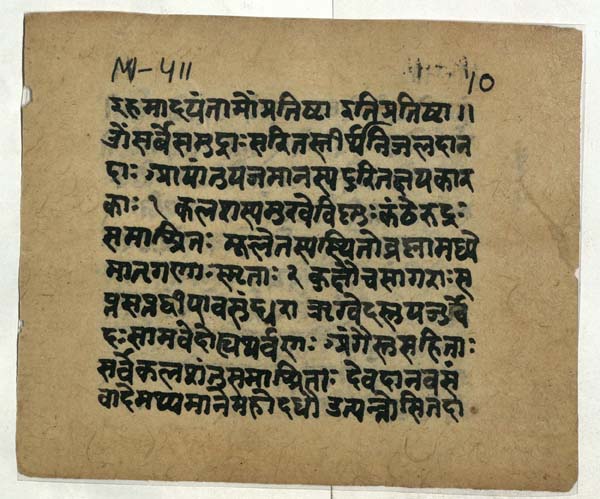 M-५॥
10
इहमादयंतामोंप्रतिष्टा इतिप्रतिष्टा॥
ओंसर्वेसमुद्राःसरितस्तीर्थानिजलदान
दाः आयांतुयजमानस्यदुरितक्षयकार
काः १ कलशस्यमुखेविष्नुःकंठेरुद्रः
समाश्रितः मूलेतस्यस्थितोब्रह्मामध्ये
मातगणाःस्मृताः २ कुक्षौचसागराःस
प्तसप्तद्वीपावसुंद्धरा ऋग्वेदस्तुयजुर्वे
दःसामवेदोह्यथर्वणः अंगैस्तुसहिताः
सर्वेकलशंतुसमाश्रिताः देवदानवसं
वादेमथ्यमानेमहोदधौ उत्पन्नोसितदा